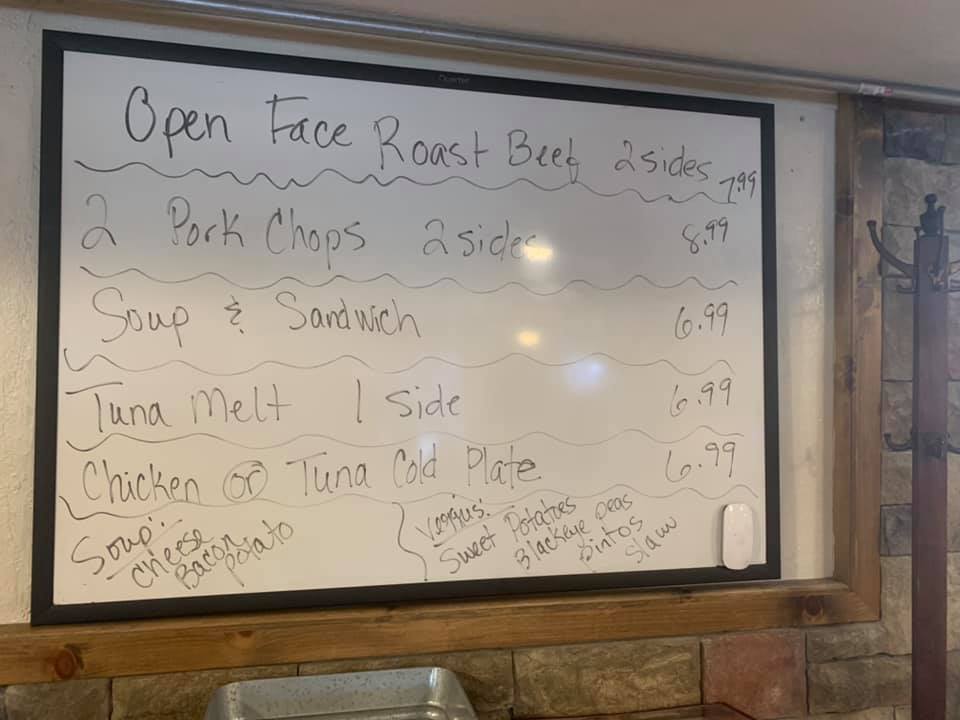 Quartet
Open Face Roast Beef 2 sides 7.99
2 Pork Chops 2 sides 8.99
Soup & Sandwich 6.99
Tuna Melt 1 side 6.99
Chicken or Tuna Cold Plate 6.99
Soup:
Cheese
Bacon
potato
Veggius:
Sweet Potatoes
Blackeye peas
pintos
slaw